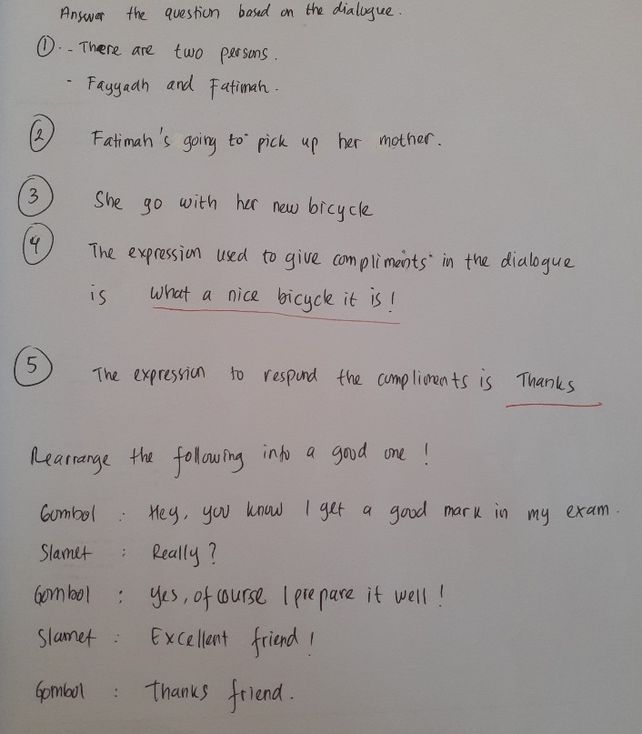 Answer the question based on the dialogue.
① - There are two persons.
- Fayyadh and Fatimah.
② Fatimah's going to pick up her mother.
③ She go with her new bicycle
④ The expression used to give compliments in the dialogue
is what a nice bicycle it is!
⑤ The expression to respond the compliments is Thanks
Rearrange the following into a good one!
Gombol : Hey, you know I get a good mark in my exam.
Slamet : Really?
Gombol : Yes, of course I prepare it well!
Slamet : Excellent friend!
Gombol : Thanks friend.